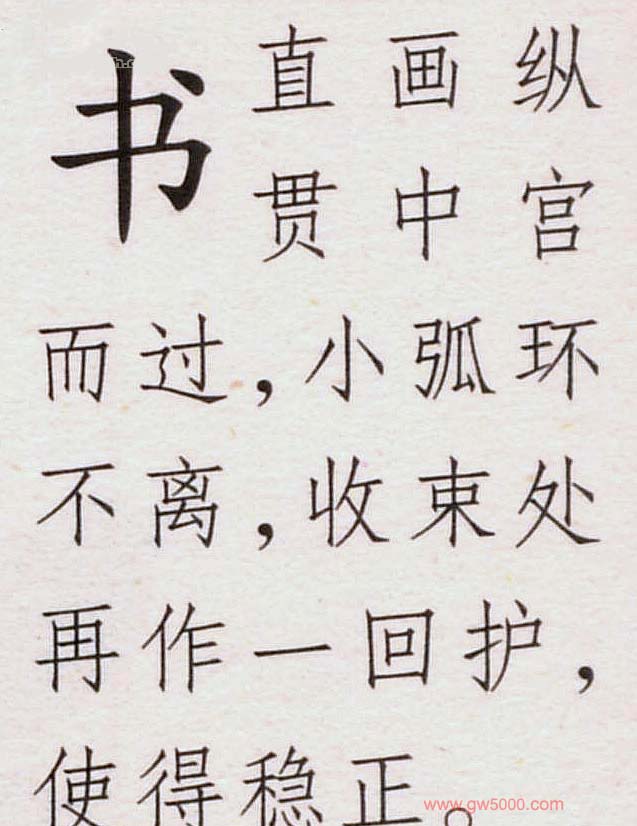 书
直画纵
贯中宫
而过，小弧环
不离，收束处
再作一回护，
使得稳正。
www.gw5000.com